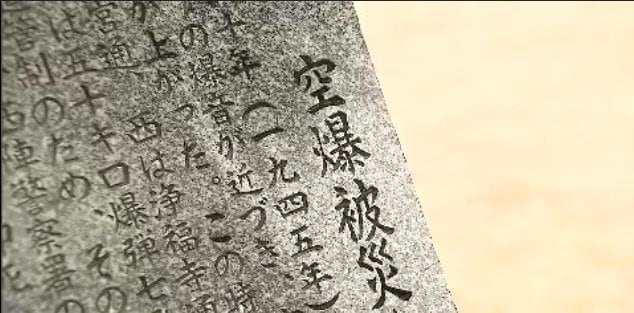 空爆被災
十年(一九四五年)
の爆音が近づき、
が上がった。この時
宮通、西は浄福寺通
は五十キロ爆弾七
管制のため、その
西陣警察署の